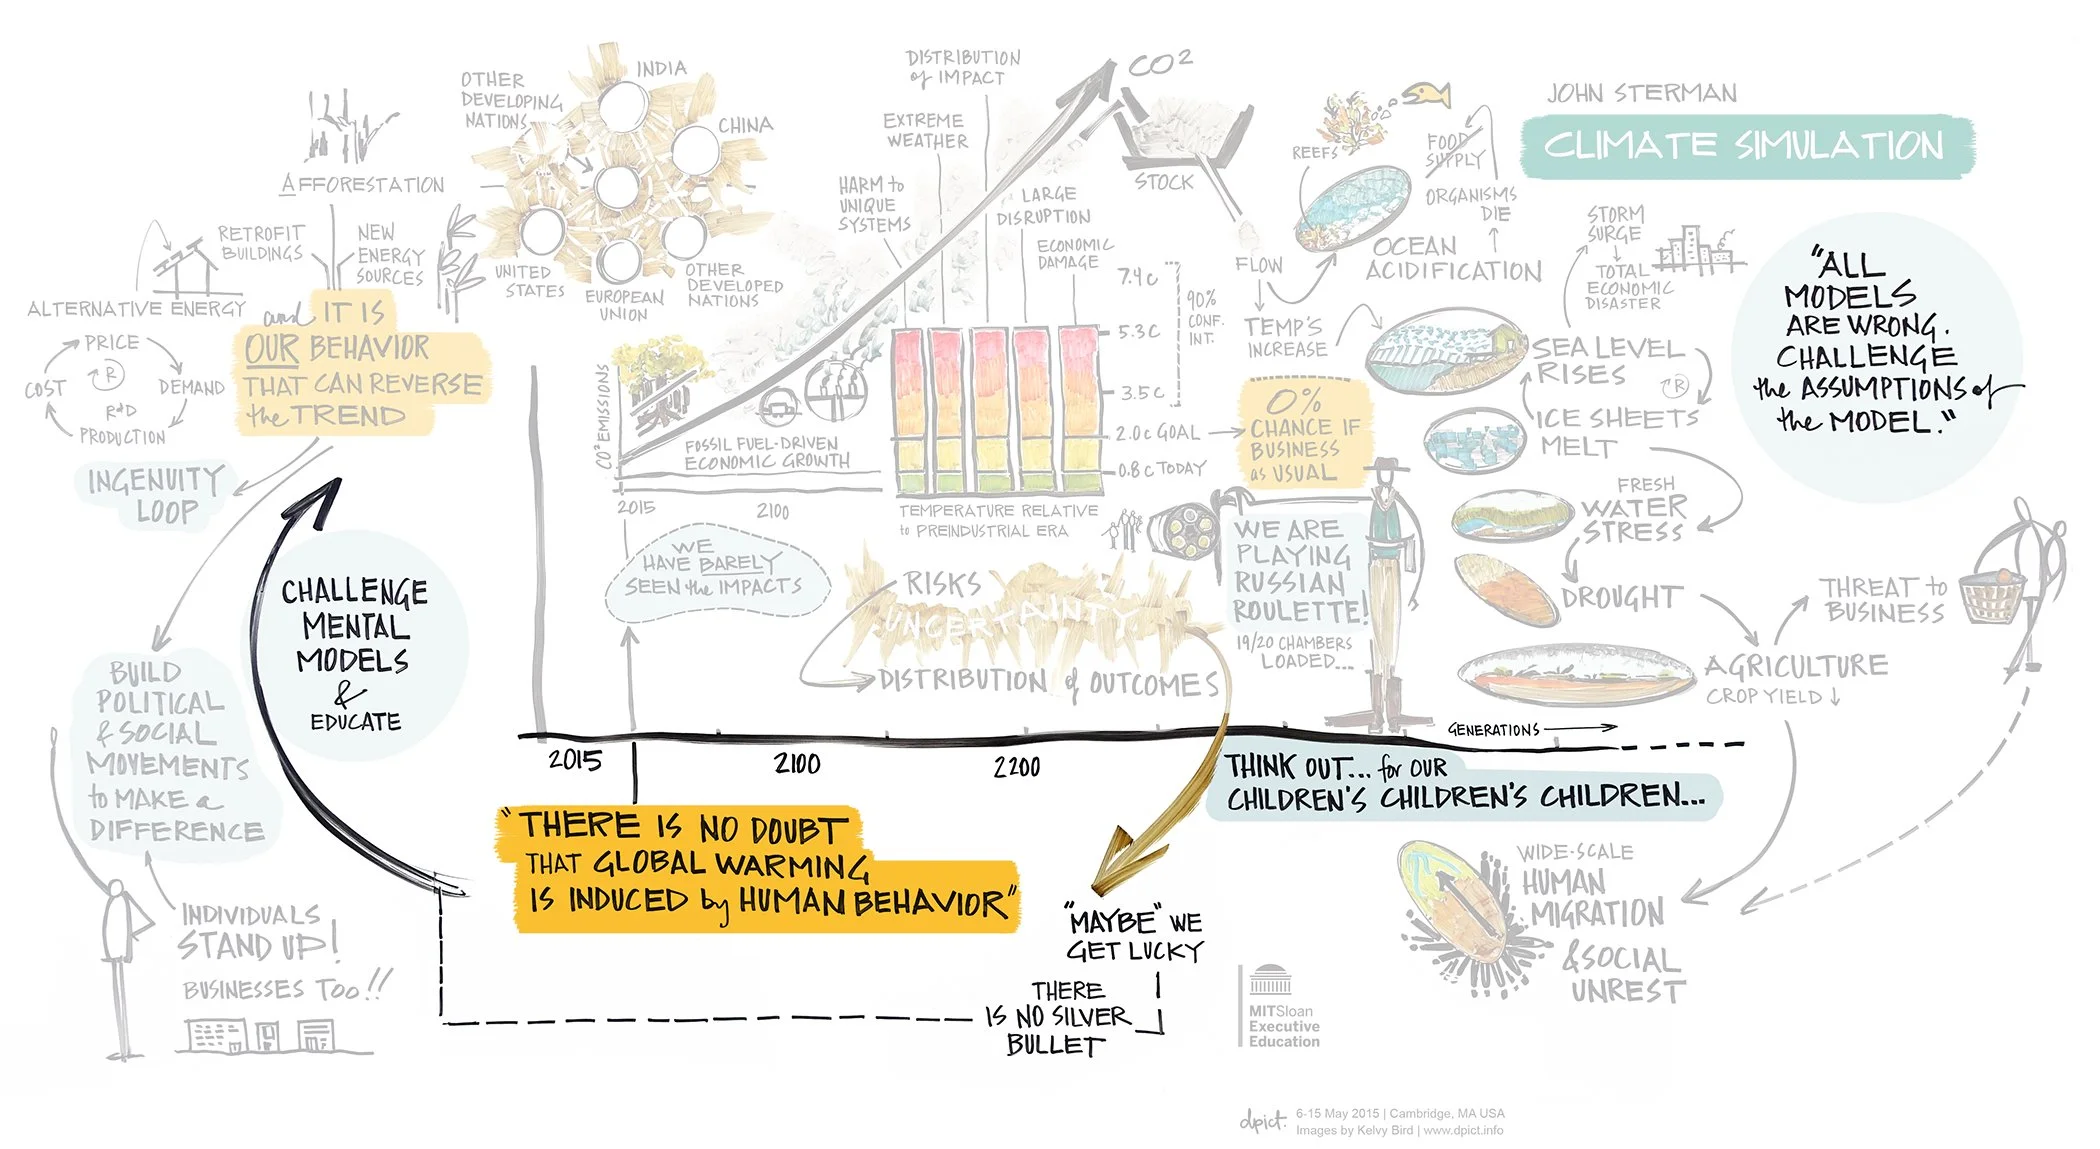 JOHN STERMAN
CLIMATE SIMULATION
"ALL
MODELS
ARE WRONG.
CHALLENGE
the ASSUMPTIONS of
the MODEL."
AFFORESTATION
RETROFIT
BUILDINGS
NEW
ENERGY
SOURCES
ALTERNATIVE ENERGY
PRICE
COST
R
DEMAND
R&D
PRODUCTION
and IT IS
OUR BEHAVIOR
THAT CAN REVERSE
the TREND
INGENUITY
LOOP
CHALLENGE
MENTAL
MODELS
&
EDUCATE
BUILD
POLITICAL
& SOCIAL
MOVEMENTS
to MAKE a
DIFFERENCE
INDIVIDUALS
STAND UP!
BUSINESSES TOO!!
OTHER
DEVELOPING
NATIONS
INDIA
CHINA
UNITED
STATES
EUROPEAN
UNION
OTHER
DEVELOPED
NATIONS
CO2 EMISSIONS
FOSSIL FUEL-DRIVEN
ECONOMIC GROWTH
2015
2100
WE
HAVE BARELY
SEEN the IMPACTS
DISTRIBUTION
of IMPACT
EXTREME
WEATHER
HARM to
UNIQUE
SYSTEMS
LARGE
DISRUPTION
ECONOMIC
DAMAGE
7.4c
5.3c
3.5c
2.0c GOAL
0.8c TODAY
90%
CONF.
INT.
TEMPERATURE RELATIVE
to PREINDUSTRIAL ERA
CO2
STOCK
FLOW
TEMP'S
INCREASE
0%
CHANCE IF
BUSINESS
as USUAL
WE ARE
PLAYING
RUSSIAN
ROULETTE!
19/20 CHAMBERS
LOADED...
RISKS
UNCERTAINTY
DISTRIBUTION of OUTCOMES
REEFS
FOOD
SUPPLY
ORGANISMS
DIE
OCEAN
ACIDIFICATION
STORM
SURGE
TOTAL
ECONOMIC
DISASTER
SEA LEVEL
RISES
R
ICE SHEETS
MELT
FRESH
WATER
STRESS
DROUGHT
AGRICULTURE
CROP YIELD ↓
THREAT to
BUSINESS
GENERATIONS
2015
2100
2200
THINK OUT... for OUR
CHILDREN'S CHILDREN'S CHILDREN...
"THERE IS NO DOUBT
THAT GLOBAL WARMING
IS INDUCED by HUMAN BEHAVIOR"
"MAYBE" WE
GET LUCKY
THERE
IS NO SILVER
BULLET
WIDE-SCALE
HUMAN
MIGRATION
& SOCIAL
UNREST
MITSloan
Executive
Education
dpict.
6-15 May 2015 | Cambridge, MA USA
Images by Kelvy Bird | www.dpict.info